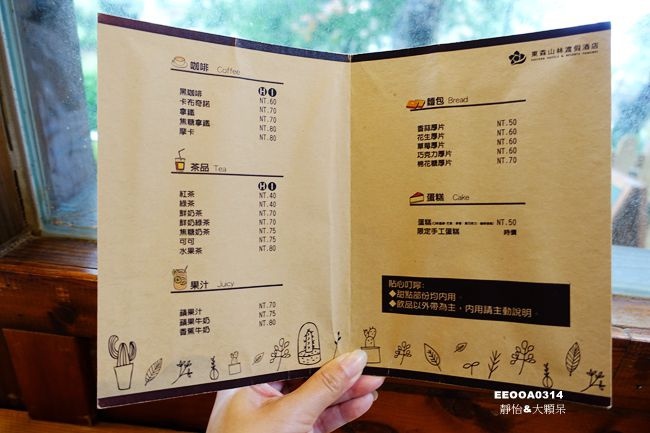 咖啡 Coffee
H I
黑咖啡 NT.60
卡布奇諾 NT.70
拿鐵 NT.70
焦糖拿鐵 NT.80
摩卡 NT.80
茶品 Tea
H I
紅茶 NT.40
綠茶 NT.40
鮮奶茶 NT.70
鮮奶綠茶 NT.70
焦糖奶茶 NT.75
可可 NT.75
水果茶 NT.80
果汁 Juicy
蘋果汁 NT.70
蘋果牛奶 NT.75
香蕉牛奶 NT.80
東森山林渡假酒店
麵包 Bread
香蒜厚片 NT.50
花生厚片 NT.50
草莓厚片 NT.60
巧克力厚片 NT.60
棉花糖厚片 NT.70
蛋糕 Cake
蛋糕 NT.50
限定手工蛋糕 時價
貼心叮嚀:
◆甜點部份均內用。
◆飲品以外帶為主，內用請主動說明。
EEOOA0314
靜怡&大顆呆